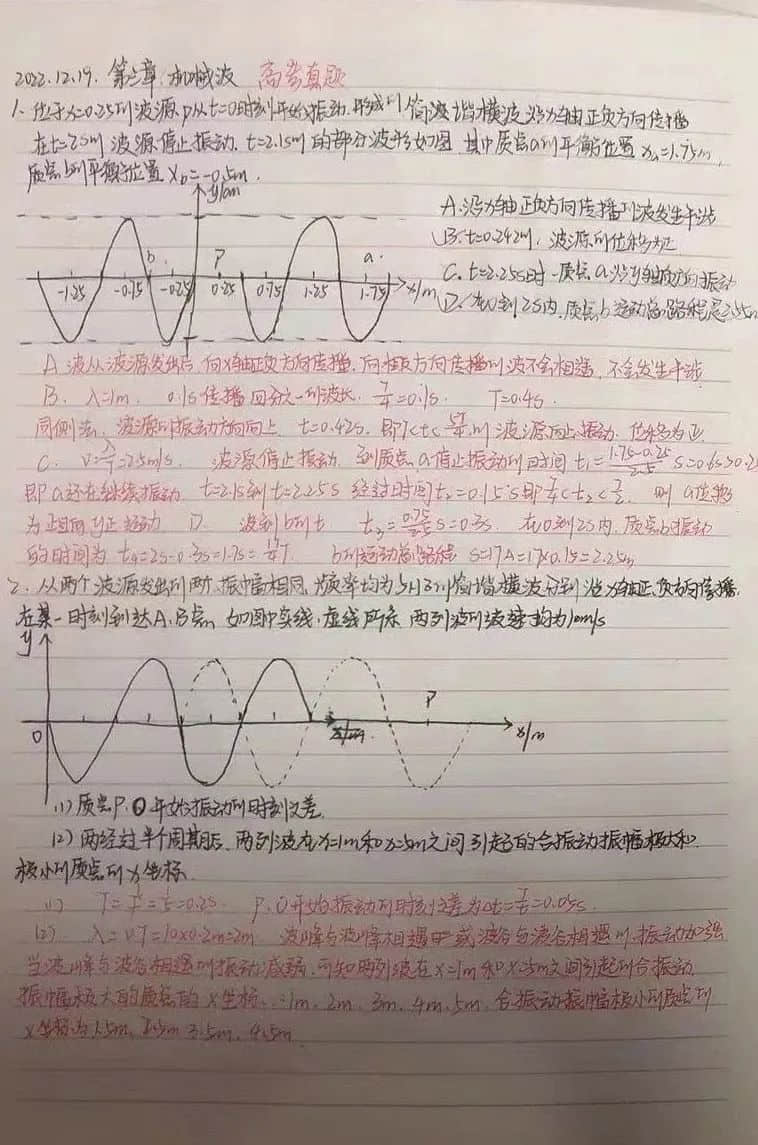 2022.12.19. 第三章. 机械波 高考真题
1. 位于x=0.25的波源p从t=0时刻开始振动. 形成的简谐横波沿x轴正负方向传播
在t=2.0时波源停止振动. t=2.1s时的部分波形如图. 其中质点a的平衡位置 xa=1.75m,
质点b的平衡位置 xb=-0.5m.
y/cm
A.沿x轴正负方向传播的波发生干涉
B. t=0.42时. 波源的位移为正
C. t=2.25s时. 质点a沿y轴负方向振动
D. 在0到2s内, 质点b运动总路程是2.55m
b P a
-1.25 -0.75 -0.25 0.25 0.75 1.25 1.75 x/m
A 波从波源发出后, 向x轴正负方向传播, 向相反方向传播的波不会相遇, 不会发生干涉
B. λ=1m. 0.1s传播四分之一的波长. T/4=0.1s. T=0.4s.
同侧法, 波源的振动方向向上. t=0.42s. 即T<t< 时波源向上振动. 位移为正.
C. v=λ/T=2.5m/s. 波源停止振动. 到质点a停止振动的时间 t1=1.75-0.25/2.5 s=0.6s>0.2
即a还在继续振动. t=2.1s到t=2.25s 经过时间t2=0.15s即T/4<t2<T/2. 则a位移
为正且向y正 D. 波到b时 t3=0.75/2.5 s=0.3s. 在0到2s内, 质点b振动
的时间为 t4=2s-0.3s=1.7s=17/4T. b的运动总路程 s=17A=17×0.15=2.55m
2. 从两个波源发出的两个振幅相同、频率均为5Hz的简谐横波分别沿x轴正、负方向传播,
在某一时刻到达A、B点, 如图中实线、虚线所示. 两列波的波速均为10m/s
y
P
O x/m
(1) 质点P、O开始振动的时刻之差.
(2) 再经过半个周期后. 两列波在x=1m和x=5m之间引起的合振动振幅极大和
极小的质点的x坐标.
(1) T=1/f=1/5=0.2s. P、O开始振动的时刻之差为Δt=T/4=0.05s.
(2) λ=vT=10×0.2m=2m 波峰与波峰相遇 或波谷与波谷相遇时. 振动加强
当波峰与波谷相遇时振动减弱. 可知两列波在x=1m和x=5m之间引起的合振动
振幅极大的质点的x坐标: 1m、2m、3m、4m、5m. 合振动振幅极小的质点的
x坐标为1.5m、2.5m 3.5m、4.5m